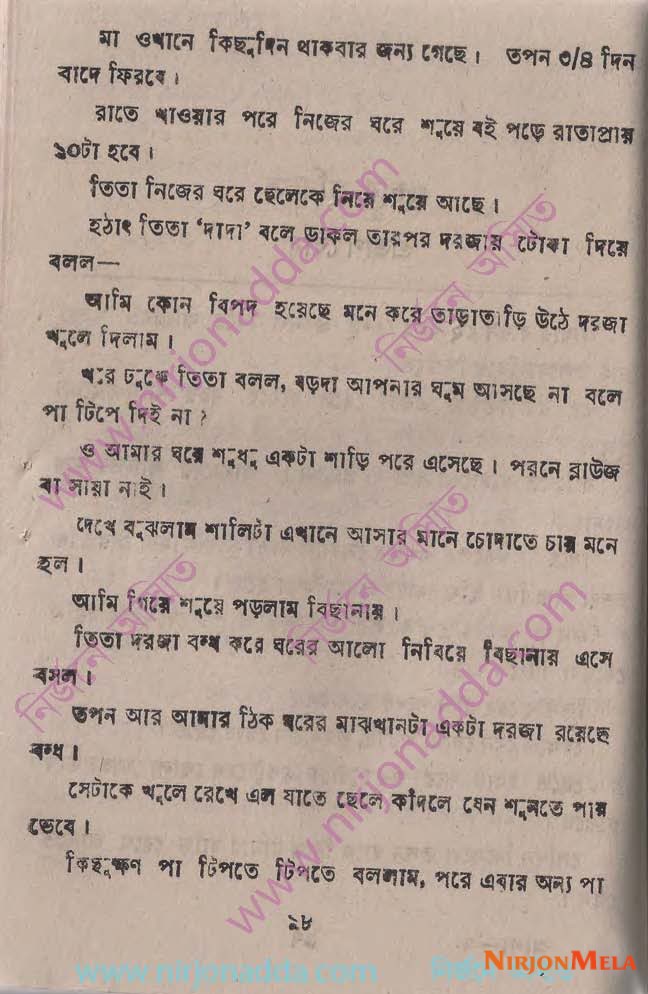 মা ওখানে কিছুদিন থাকবার জন্য গেছে। তপন ৩/৪ দিন
বাদে ফিরবে।
রাতে খাওয়ার পরে নিজের ঘরে শুয়ে বই পড়ে রাতাপ্রায়
১০টা হবে।
তিতা নিজের ঘরে ছেলেকে নিয়ে শুয়ে আছে।
হঠাৎ তিতা ‘দাদা’ বলে ডাকল তারপর দরজায় টোকা দিয়ে
বলল—
আমি কোন বিপদ হয়েছে মনে করে তাড়াতাড়ি উঠে দরজা
খুলে দিলাম।
ঘরে ঢুকে তিতা বলল, বড়দা আপনার ঘুম আসছে না বলে
পা টিপে দিই না?
ও আমার ঘরে শুধু একটা শাড়ি পরে এসেছে। পরনে ব্লাউজ
বা সায়া নাই।
দেখে বুঝলাম শালিটা এখানে আসার মানে চোদাতে চায় মনে
হল।
আমি গিয়ে শুয়ে পড়লাম বিছানায়।
তিতা দরজা বন্ধ করে ঘরের আলো নিবিয়ে বিছানায় এসে
বসল।
তপন আর আমার ঠিক ঘরের মাঝখানটা একটা দরজা রয়েছে
বন্ধ।
সেটাকে খুলে রেখে এল যাতে ছেলে কাঁদলে যেন শুনতে পায়
ভেবে।
কিছুক্ষণ পা টিপতে টিপতে বললাম, পরে এবার অন্য পা
১৮
www.nirjonadda.com
নির্জনে অমিত
www.nirjonadda.com
নির্জনে অমিত
নির্জনে অমিত
www.nirjonadda.com
NIRJONMELA